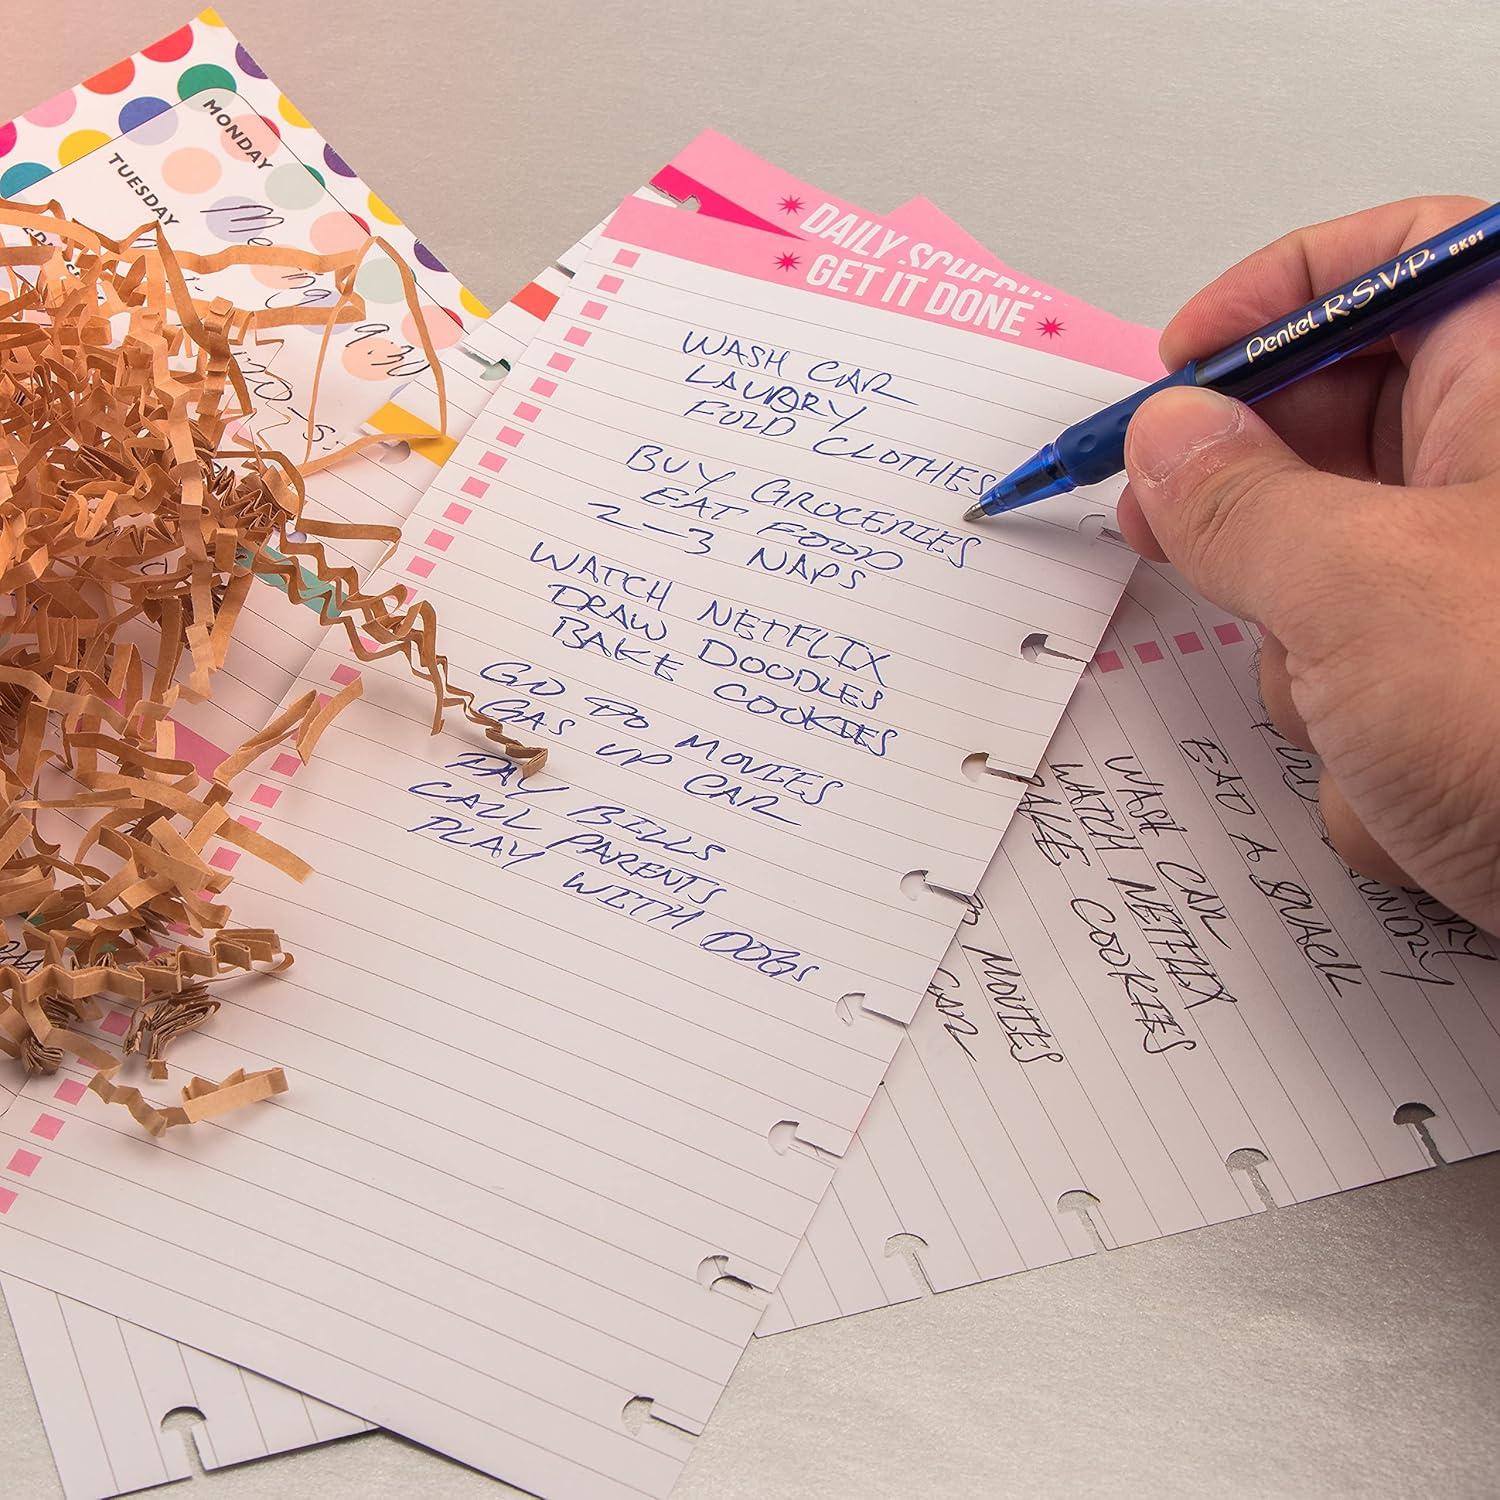 MONDAY
TUESDAY
DAILY SCHEDU
GET IT DONE
WASH CAR
LAUDRY
FOLD CLOTHES
BUY GROCERIES
EAT FOOD
2-3 NAPS
WATCH NETFLIX
DRAW DOODLES
BAKE COOKIES
GO TO MOVIES
GAS UP CAR
PAY BILLS
CALL PARENTS
PLAY WITH DOGS
Pentel R.S.V.P. BK91
EAT A SNACK
WASH CAR
WATCH NETFLIX
BAKE COOKIES
MOVIES
CAR